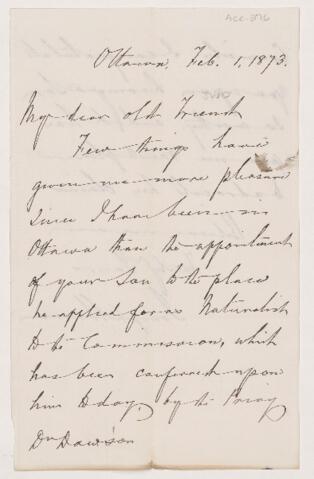 Acc-976
Ottawa, Feb. 1, 1873.
My dear old Friend
Few things have
given me more pleasure
since I have been in
Ottawa than the appointment
of your Son to the place
he applied for as Naturalist
to the Commission, which
has been conferred upon
him to day, by the Privy
Dr Dawson